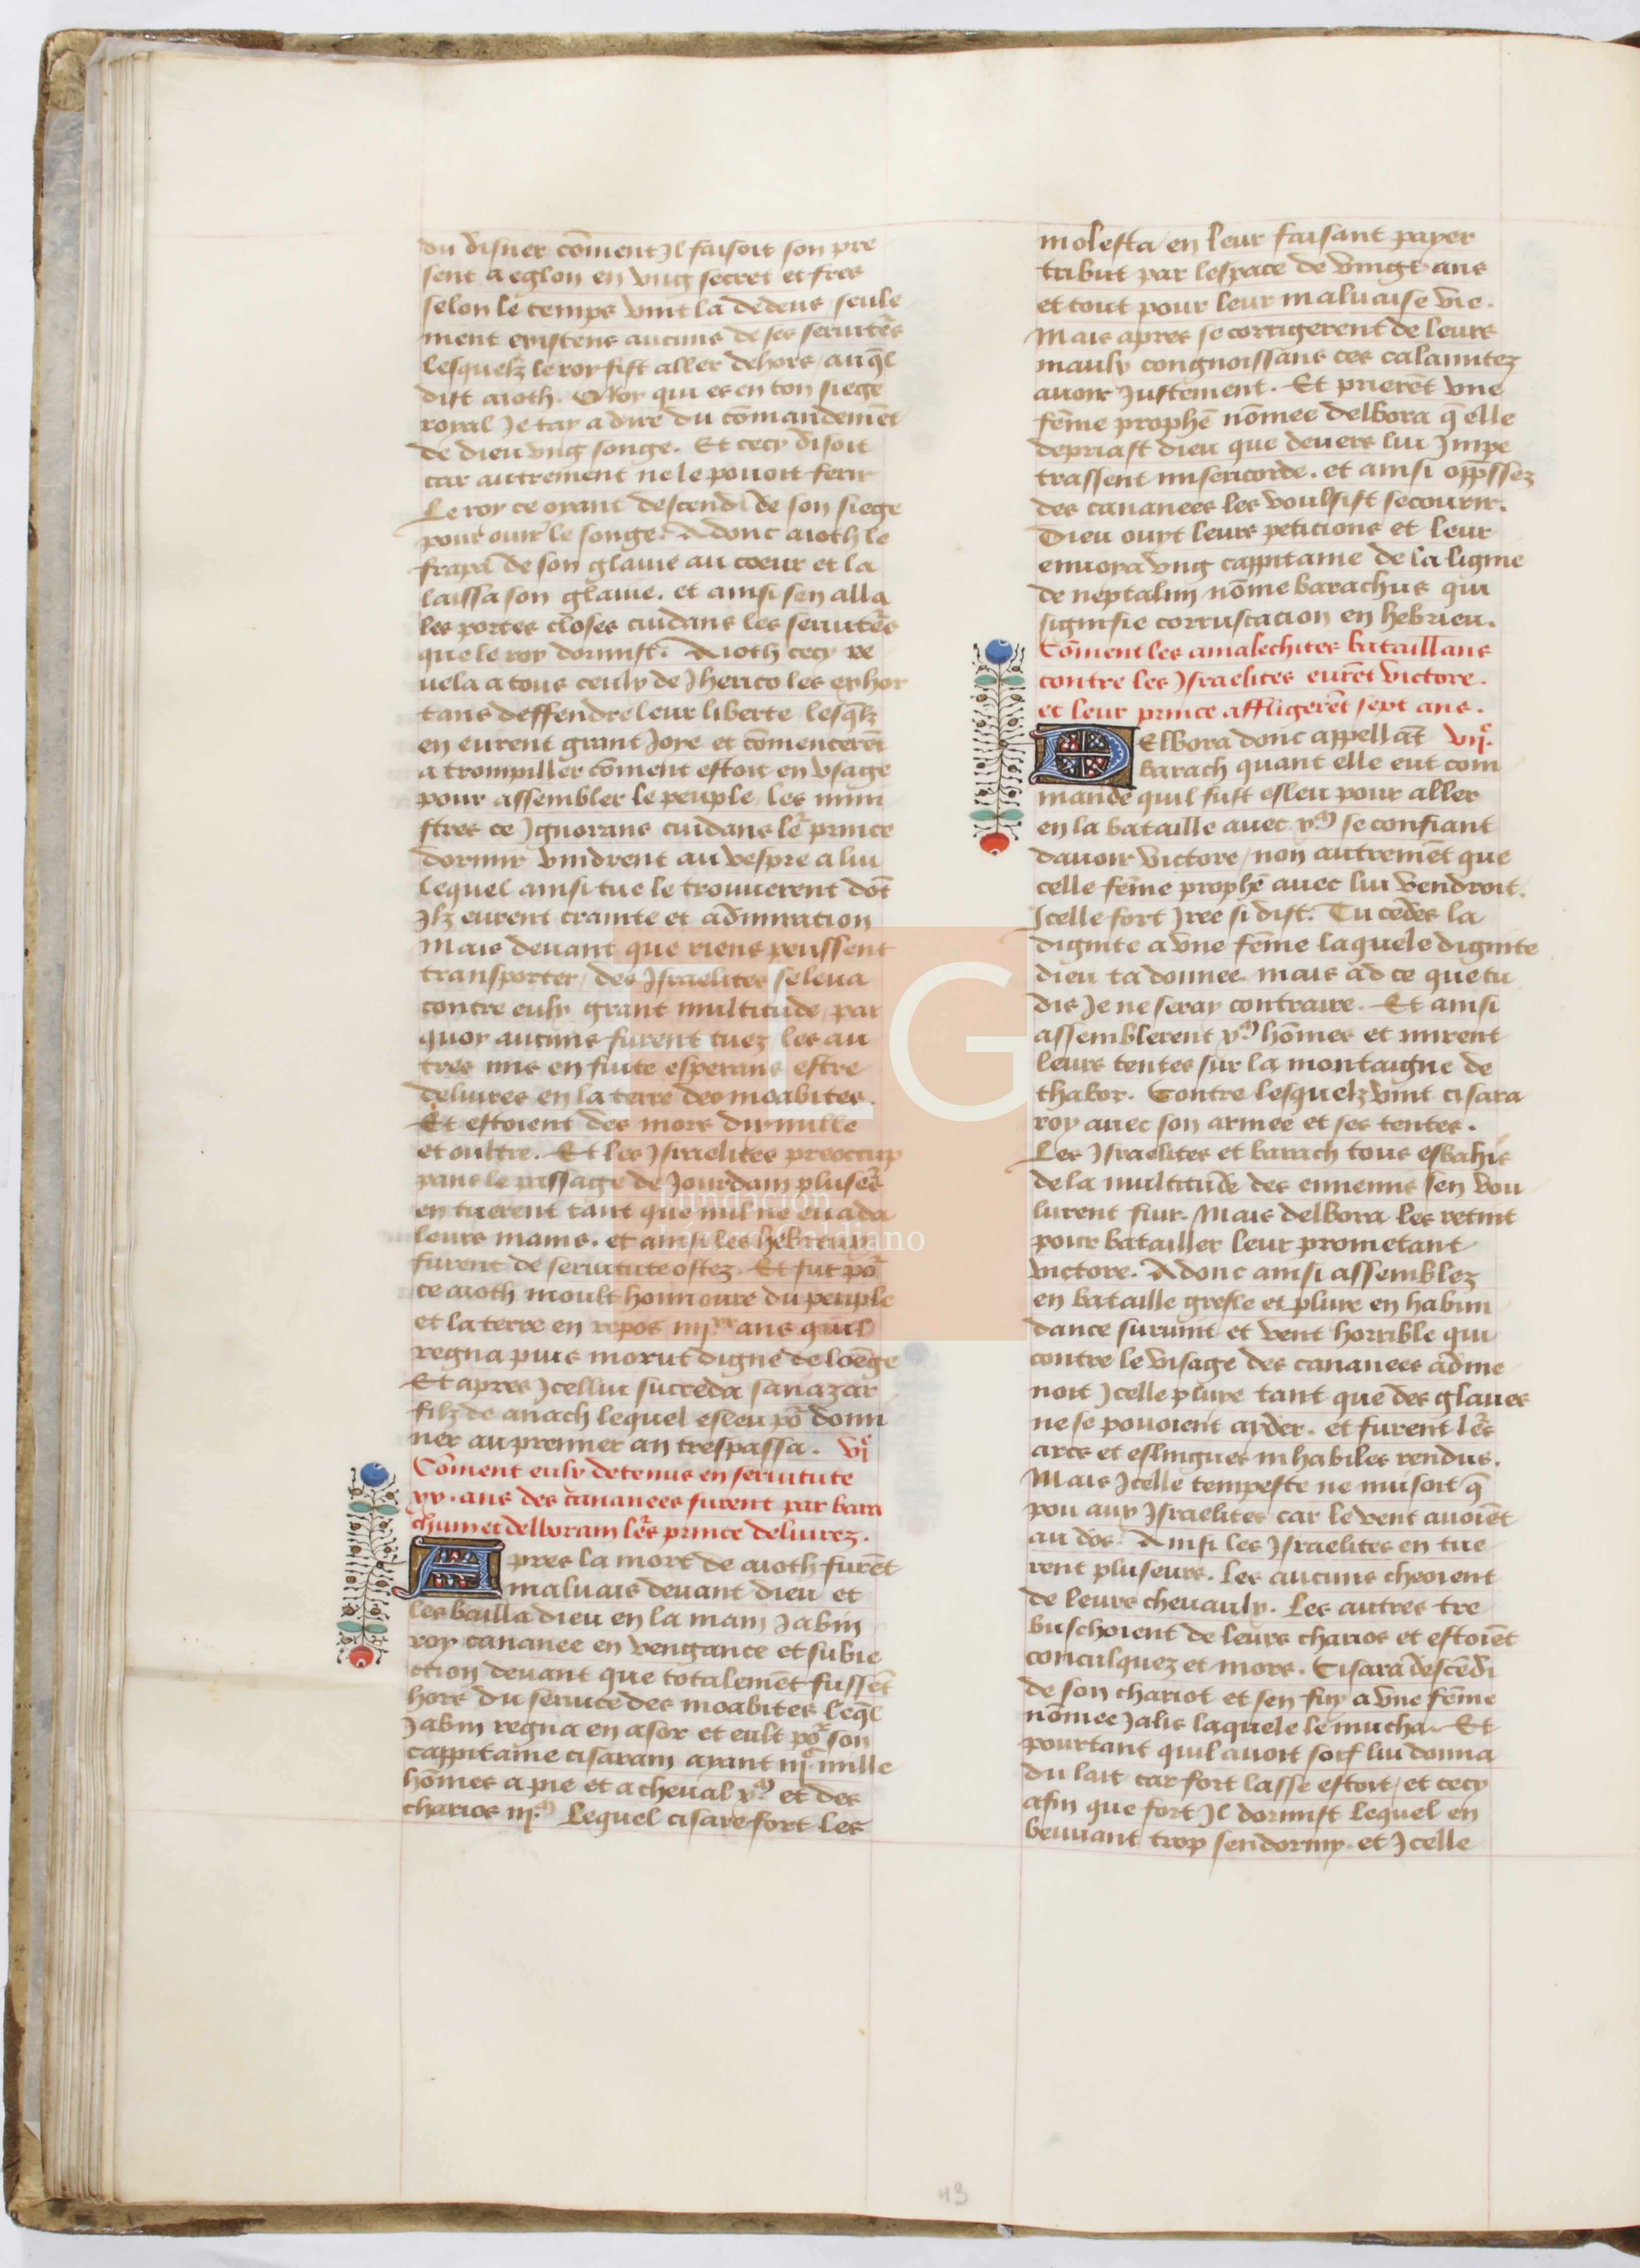 du disner cōment Jl faisoit son pre
sent a eglon en vng secret et fres
selon le temps vint la dedens seule
ment existens aucuns de ses seruitēs
lesquelz le roy fist aller dehors / auq̄l
dist aioth. O Roy qui es en ton siege
royal Je tay a dire du cōmandemēt
de dieu vng songe. Et cecy disoit
car autrement ne le pouoit ferir
Le roy ce oyant descendi de son siege
pour ouir le songe. Adonc aioth le
frapa de son glaiue au coeur et la
laissa son glaiue. et ainsi sen alla
les portes closes cuidans les seruitēs
que le roy dormist. Aioth cecy re
uela a tous ceulx de Jherico les exhor
tans deffendre leur liberte / lesq̄lz
en eurent grant Joye et cōmencerēt
a trompiller cōment estoit en vsage
pour assembler le peuple / les mini
stres ce Jgnorans cuidans lēr prince
dormir vindrent au vespre a lui
lequel ainsi tue le trouuerent dōt
Jlz eurent crainte et admiration
Mais deuant que riens peussent
transporter / des Jsraelites se leua
contre eulx grant multitude / par
quoy aucuns furent tuez / les au
tres mis en fuite esperans estre
deliures en la terre des moabites.
Et estoient des mors dix mille
et oultre. Et les Jsraelites preoccup
pans le passage de Jourdain plusērs
en tuerent tant que nul ne euada
leurs mains. et ainsi les hebreux
furent de seruitute ostez. Et fut pōr
ce aioth moult honnoure du peuple
et la terre en repos iiij.xx ans quil
regna puis morut digne de loēnge
Et apres Jcellui succeda sanazar
filz de anach lequel esleu pōr domi
ner au premier an trespassa. vj.e
Cōment eulx detenus en seruitute
xx. ans des cananees furent par bara
chum et delboram lērs prince deliurez.
Apres la mort de aioth furēt
maluais deuant dieu et
les bailla dieu en la main Jabin
roy cananee en vengance et subie
ction deuant que totalemēt fussēt
hors du seruice des moabites leq̄l
Jabin regna en asor et eult pōr son
cappitaine cisaram ayant iij.c mille
hōmes a pie et a cheual x.m et des
charios iij.m Lequel cisare fort les
molesta / en leur faisant payer
tribut par lespace de vingt ans
et tout pour leur maluaise vie.
Mais apres se corrigerent de leurs
maulx congnoissans ces calamitez
auoir Justement. Et prierēt vne
fēme prophē nōmee delbora q̄ elle
depriast dieu que deuers lui Jmpe
trassent misericorde. et ainsi opp̄ssez
des cananees les voulsist secourir.
Dieu ouyt leurs peticions et leur
enuoya vng cappitaine de la ligne
de neptalim nōme barachus qui
signifie corruscacion en hebrieu.
Cōment les amalechites bataillans
contre les Jsraelites eurēt victore.
et leur prince affligerēt sept ans.
DElbora donc appellāt vij.e
barach quant elle eut com
mande quil fust esleu pour aller
en la bataille auec x.m se confiant
dauoir victore / non autremēt que
celle fēme prophē auec lui vendroit.
Jcelle fort Jree si dist. Tu cedes la
dignite a vne fēme laquele dignite
dieu ta donnee. mais ad ce que tu
dis Je ne seray contraire. Et ainsi
assemblerent x.m hōmes et mirent
leurs tentes sur la montaigne de
thabor. Contre lesquelz vint cisara
roy auec son armee et ses tentes.
Les Jsraelites et barach tous esbahis
de la multitude des ennemis sen vou
lurent fuir. Mais delbora les retint
pour batailler leur prometant
victore. Adonc ainsi assemblez
en bataille gresle et pluye en habun
dance suruint et vent horrible qui
contre le visage des cananees adme
noit Jcelle pluye tant que des glaues
ne se pouoient ayder. et furent lērs
arcs et eslingues inhabiles rendus.
Mais Jcelle tempeste ne nuisoit q̄
pou aux Jsraelites car le vent auoiēt
au dos. Ainsi les Jsraelites en tue
rent pluseurs. Les aucuns cheoient
de leurs cheuaulx. Les autres tre
buschoient de leurs charios et estoiēt
conculquez et mors. Cisara descēdi
de son chariot et sen fuy a vne fēme
nōmee Jalis laquele le mucha. Et
pourtant quil auoit soif lui donna
du lait car fort lasse estoit / et cecy
afin que fort Jl dormist lequel en
beuuant trop sendormy. et Jcelle
43
LG
Fundación
Lázaro Galdiano